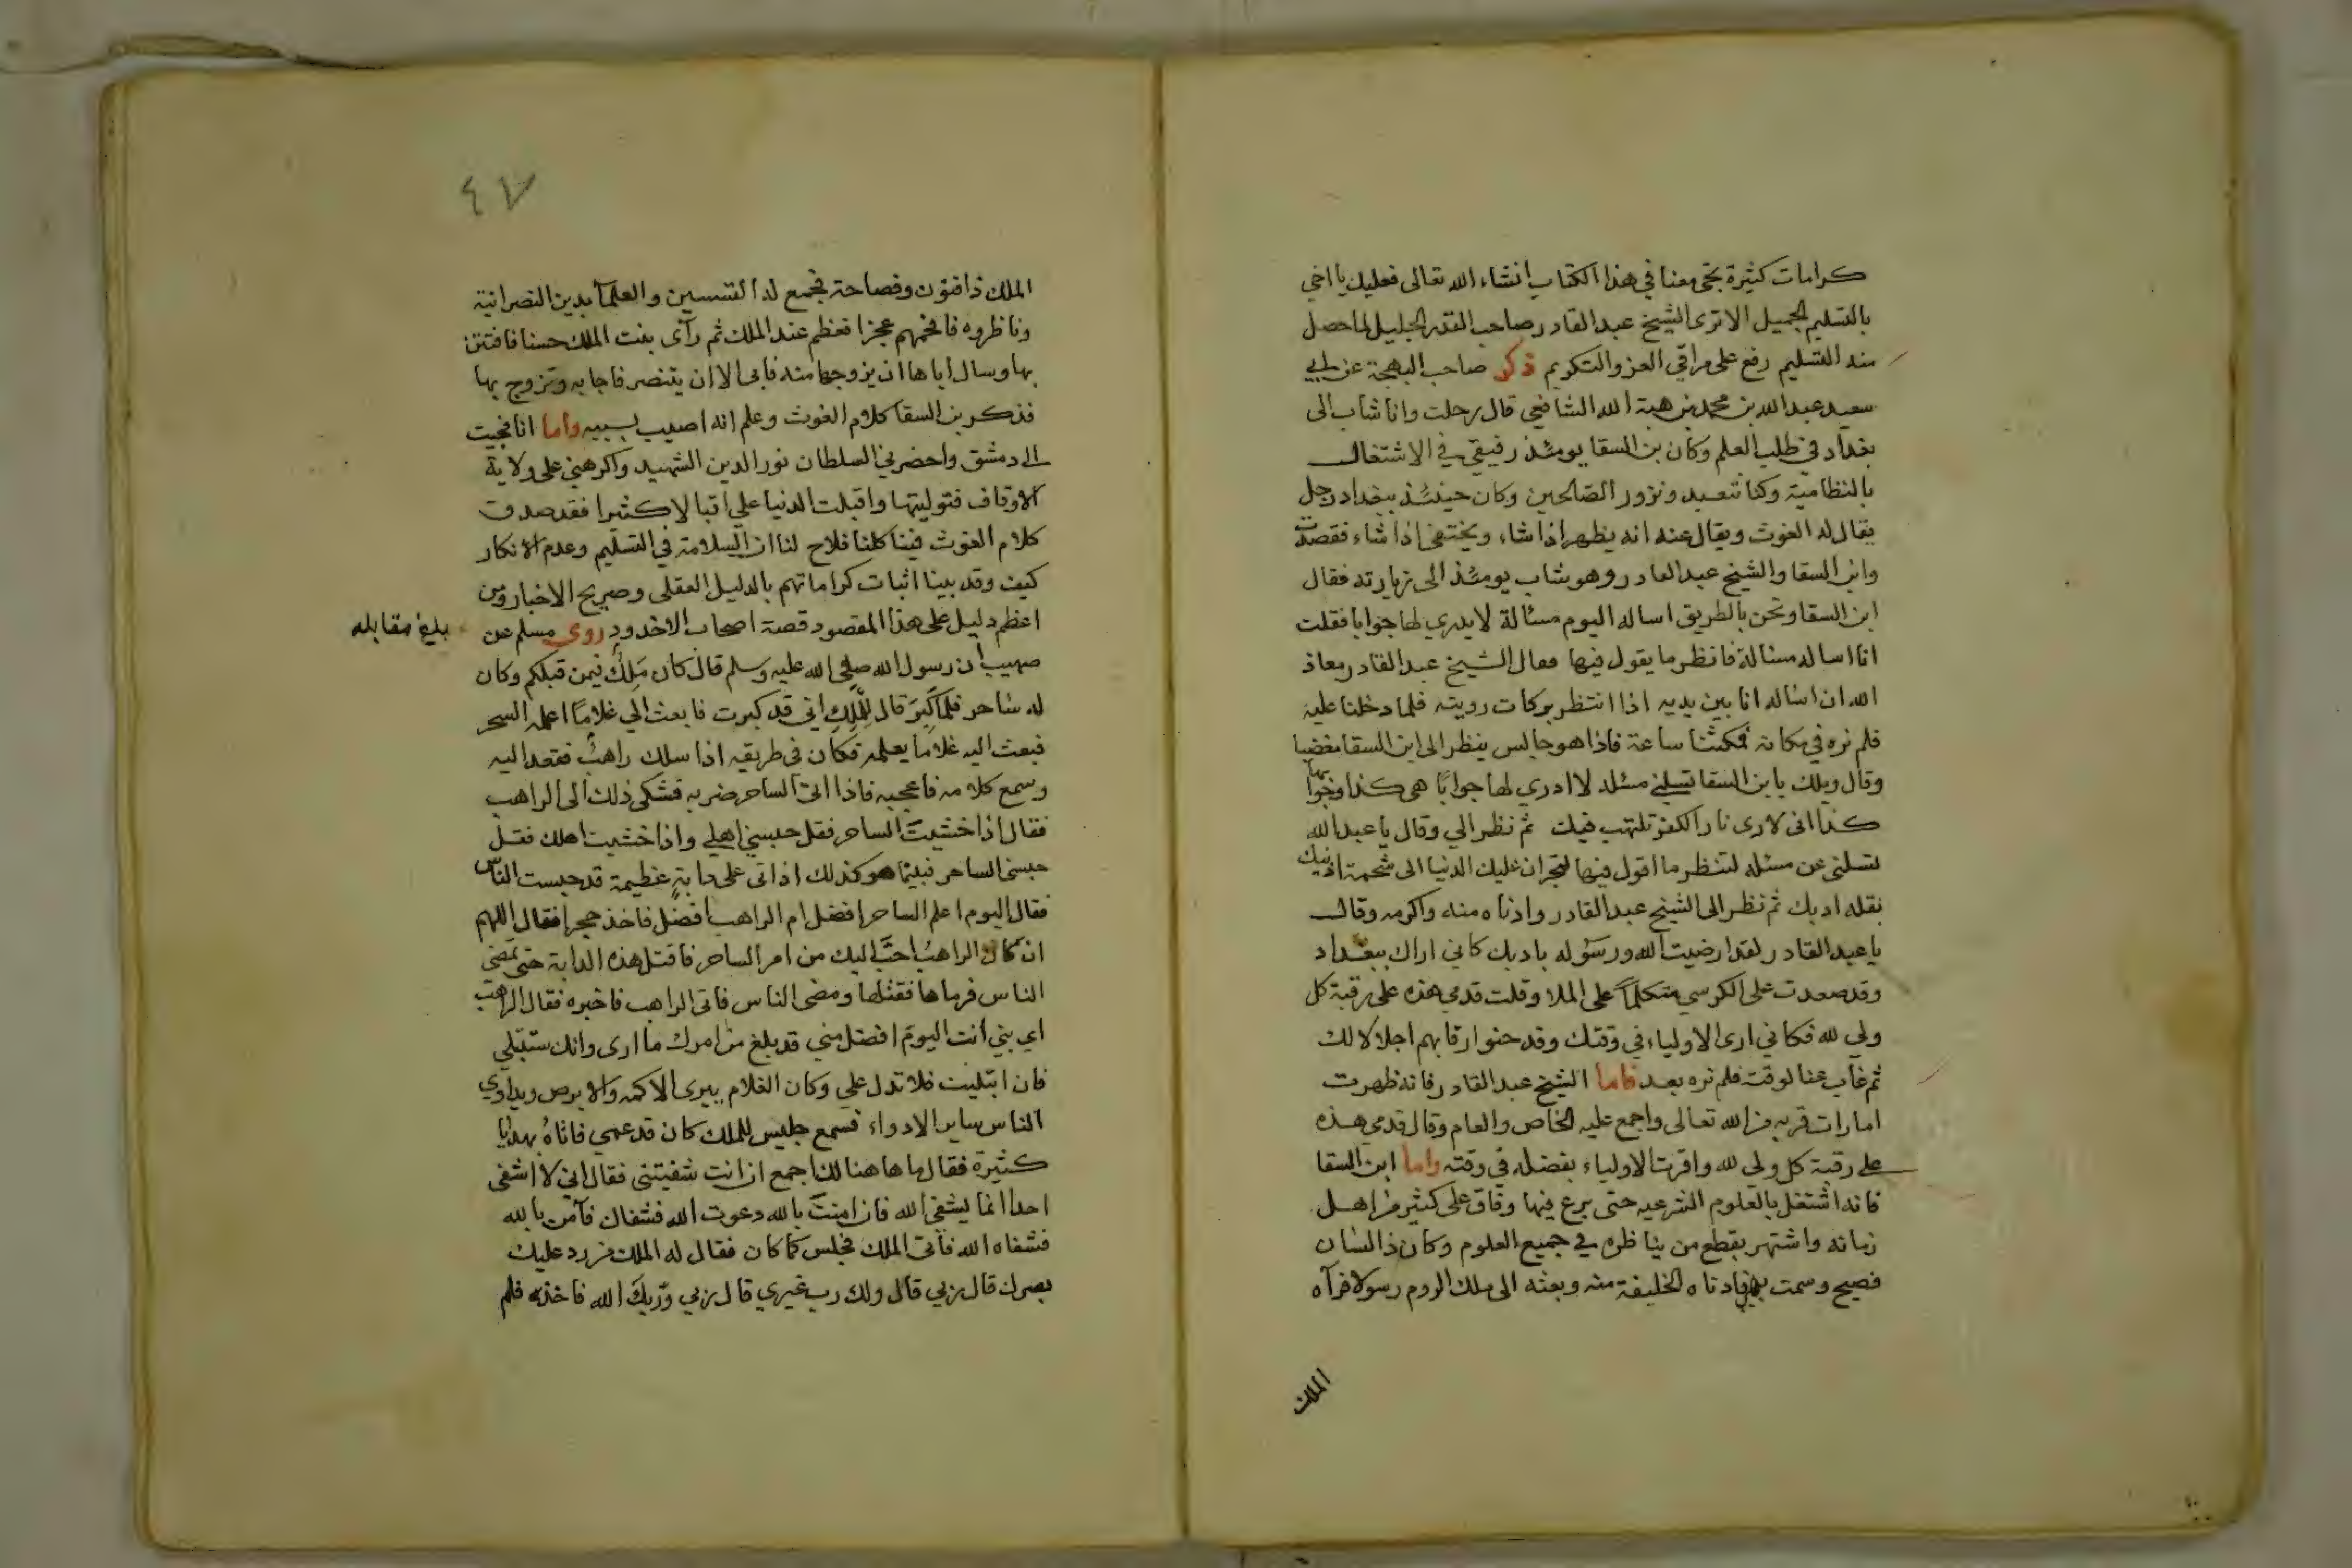 كرامات كثيرة تجئ معنا في هذا الكتاب انشاء الله تعالى فعليك يا اخي
بالتسليم الجميل الا ترى الشيخ عبد القادر صاحب القدر الجليل لما حصل
منه التسليم رفع على مراقي العز والتكريم ذكر صاحب البهجة عن ابي
سعيد عبد الله بن محمد بن هبة الله الشافعي قال رحلت وانا شاب الى
بغداد في طلب العلم وكان بن السقا يومئذ رفيقي في الاشتغال
بالنظامية وكنا نتعبد ونزور الصالحين وكان حينئذ ببغداد رجل
يقال له الغوث ويقال عنه انه يظهر اذا شاء ويختفي اذا شاء فقصدت
وابن السقا والشيخ عبد القادر وهو شاب يومئذ الى زيارته فقال
ابن السقا ونحن بالطريق اساله اليوم مسئالة لا يدري لها جوابا فقلت
انا اساله مسئالة فانظر ما يقول فيها فقال الشيخ عبد القادر معاذ
الله ان اساله انا بين يديه اذا انتظر بركات رويته فلما دخلنا عليه
فلم نره في مكانه فمكثنا ساعة فاذا هو جالس ينظر الى ابن السقا مغضبا
وقال ويلك يا بن السقا تسلني مسئله لا ادري لها جوابا هى كذا وجوابها
كذا انى لارى نار الكفر تلتهب فيك ثم نظر الي وقال يا عبد الله
تسلني عن مسئله لتنظر ما اقول فيها لتجران عليك الدنيا الى شحمة اذنيك
بقله ادبك ثم نظر الى الشيخ عبد القادر وادناه منه واكرمه وقال
يا عبد القادر لقد ارضيت الله ورسوله بادبك كاني اراك ببغداد
وقد صعدت على الكرسي متكلما على الملا وقلت قدمي هذه على رقبة كل
ولي لله فكاني ارى الاولياء في وقتك وقد حنوا رقابهم اجلالا لك
ثم غاب عنا لوقته فلم نره بعد فاما الشيخ عبد القادر فانه ظهرت
امارات قربه من الله تعالى واجمع عليه الخاص والعام وقال قدمي هذه
على رقبة كل ولى لله واقرت الاولياء بفضله في وقته واما ابن السقا
فانه اشتغل بالعلوم الشرعيه حتى برع فيها وفاق على كثير من اهل
زمانه واشتهر بقطع من يناظره في جميع العلوم وكان ذا لسان
فصيح وسمت بهي فادناه الخليفة منه وبعثه الى ملك الروم رسولا فرآه
الملك
٤٧
الملك ذا فنون وفصاحة فجمع له القسسين والعلمآ بدين النصرانية
وناظروه فافحمهم عجزا فعظم عند الملك ثم رآى بنت الملك حسنا فافتتن
بها وسال اباها ان يزوجها منه فابى الا ان يتنصر فاجابه وتزوج بها
فذكر بن السقا كلام الغوث وعلم انه اصيب بسببه واما انا فجيت
الى دمشق واحضرني السلطان نور الدين الشهيد واكرهني على ولاية
الاوقاف فتوليتها واقبلت الدنيا علي اقبالا كثيرا فقد صدق
كلام الغوث فينا كلنا فلاح لنا ان السلامة في التسليم وعدم الانكار
كيف وقد بينا اثبات كراماتهم بالدليل العقلى وصريح الاخبار ومن
اعظم دليل على هذا المقصود قصة اصحاب الاخدود روى مسلم عن
بلغ مقابله
صهيب ان رسول الله صلى الله عليه وسلم قال كان مَلِكٌ فيمن قبلكم وكان
له ساحر فلما كَبِرَ قال لِلْمَلِكِ اني قد كبرت فابعث الي غلامًا اعلمه السحر
فبعث اليه غلاما يعلمه فكان في طريقه اذا سلك راهبٌ فقعد اليه
وسمع كلامه فاعجبه فاذا اتى الساحر ضربه فشكى ذلك الى الراهب
فقال اذا خشيت الساحر فقل حبسني اهلي واذا خشيت اهلك فقل
حبسني الساحر فبينما هو كذلك اذ اتى على دابةٍ عظيمة قد حبست الناس
فقال اليوم اعلم الساحر افضل ام الراهب افضل فاخذ حجرا فقال اللهم
ان كان الراهبُ احبَّ اليك من امر الساحر فاقتل هذه الدابة حتى تمضى
الناس فرماها فقتلها ومضى الناس فاتى الراهب فاخبره فقال الراهب
اي بني انت اليوم افضل مني قد بلغ من امرك ما ارى وانك ستبتلي
فان ابتليت فلا تدل علي وكان الغلام يبرى الاكمه والابرص ويداوي
الناس ساير الادواء فسمع جليس للملك كان قد عمي فاتاهُ بهدايا
كثيرة فقال ما هاهنا لك اجمع ان انت شفيتنى فقال اني لا اشفى
احدا انما يشفى الله فان امنت بالله دعوت الله فشفاك فآمن بالله
فشفاه الله فأتى الملك فجلس كما كان فقال له الملك من رد عليك
بصرك قال ربي قال ولك رب غيري قال ربي وربك الله فاخذه فلم